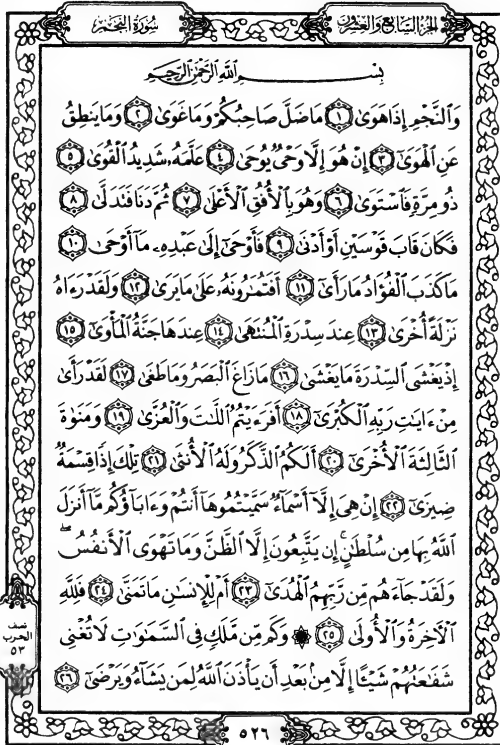 سُورَةُ النَّجْمِ
الجُزْءُ السَّابِعُ وَالعِشْرُونَ
بِسْمِ اللَّهِ الرَّحْمَٰنِ الرَّحِيمِ
وَالنَّجْمِ إِذَا هَوَىٰ ١ مَا ضَلَّ صَاحِبُكُمْ وَمَا غَوَىٰ ٢ وَمَا يَنطِقُ
عَنِ الْهَوَىٰ ٣ إِنْ هُوَ إِلَّا وَحْيٌ يُوحَىٰ ٤ عَلَّمَهُ شَدِيدُ الْقُوَىٰ ٥
ذُو مِرَّةٍ فَاسْتَوَىٰ ٦ وَهُوَ بِالْأُفُقِ الْأَعْلَىٰ ٧ ثُمَّ دَنَا فَتَدَلَّىٰ ٨
فَكَانَ قَابَ قَوْسَيْنِ أَوْ أَدْنَىٰ ٩ فَأَوْحَىٰ إِلَىٰ عَبْدِهِ مَا أَوْحَىٰ ١٠
مَا كَذَبَ الْفُؤَادُ مَا رَأَىٰ ١١ أَفَتُمَارُونَهُ عَلَىٰ مَا يَرَىٰ ١٢ وَلَقَدْ رَءَاهُ
نَزْلَةً أُخْرَىٰ ١٣ عِندَ سِدْرَةِ الْمُنتَهَىٰ ١٤ عِندَهَا جَنَّةُ الْمَأْوَىٰ ١٥
إِذْ يَغْشَى السِّدْرَةَ مَا يَغْشَىٰ ١٦ مَا زَاغَ الْبَصَرُ وَمَا طَغَىٰ ١٧ لَقَدْ رَأَىٰ
مِنْ ءَايَاتِ رَبِّهِ الْكُبْرَىٰ ١٨ أَفَرَءَيْتُمُ اللَّاتَ وَالْعُزَّىٰ ١٩ وَمَنَوٰةَ
الثَّالِثَةَ الْأُخْرَىٰ ٢٠ أَلَكُمُ الذَّكَرُ وَلَهُ الْأُنثَىٰ ٢١ تِلْكَ إِذًا قِسْمَةٌ
ضِيزَىٰ ٢٢ إِنْ هِيَ إِلَّا أَسْمَاءٌ سَمَّيْتُمُوهَا أَنتُمْ وَءَابَاؤُكُم مَّا أَنزَلَ
اللَّهُ بِهَا مِن سُلْطَٰنٍ ۚ إِن يَتَّبِعُونَ إِلَّا الظَّنَّ وَمَا تَهْوَى الْأَنفُسُ ۖ
وَلَقَدْ جَاءَهُم مِّن رَّبِّهِمُ الْهُدَىٰ ٢٣ أَمْ لِلْإِنسَٰنِ مَا تَمَنَّىٰ ٢٤ فَلِلَّهِ
الْآخِرَةُ وَالْأُولَىٰ ٢٥ ۞ وَكَم مِّن مَّلَكٍ فِي السَّمَٰوَٰتِ لَا تُغْنِي
شَفَٰعَتُهُمْ شَيْـًٔا إِلَّا مِن بَعْدِ أَن يَأْذَنَ اللَّهُ لِمَن يَشَاءُ وَيَرْضَىٰ ٢٦
نصف
الحزب
٥٣
٥٢٦